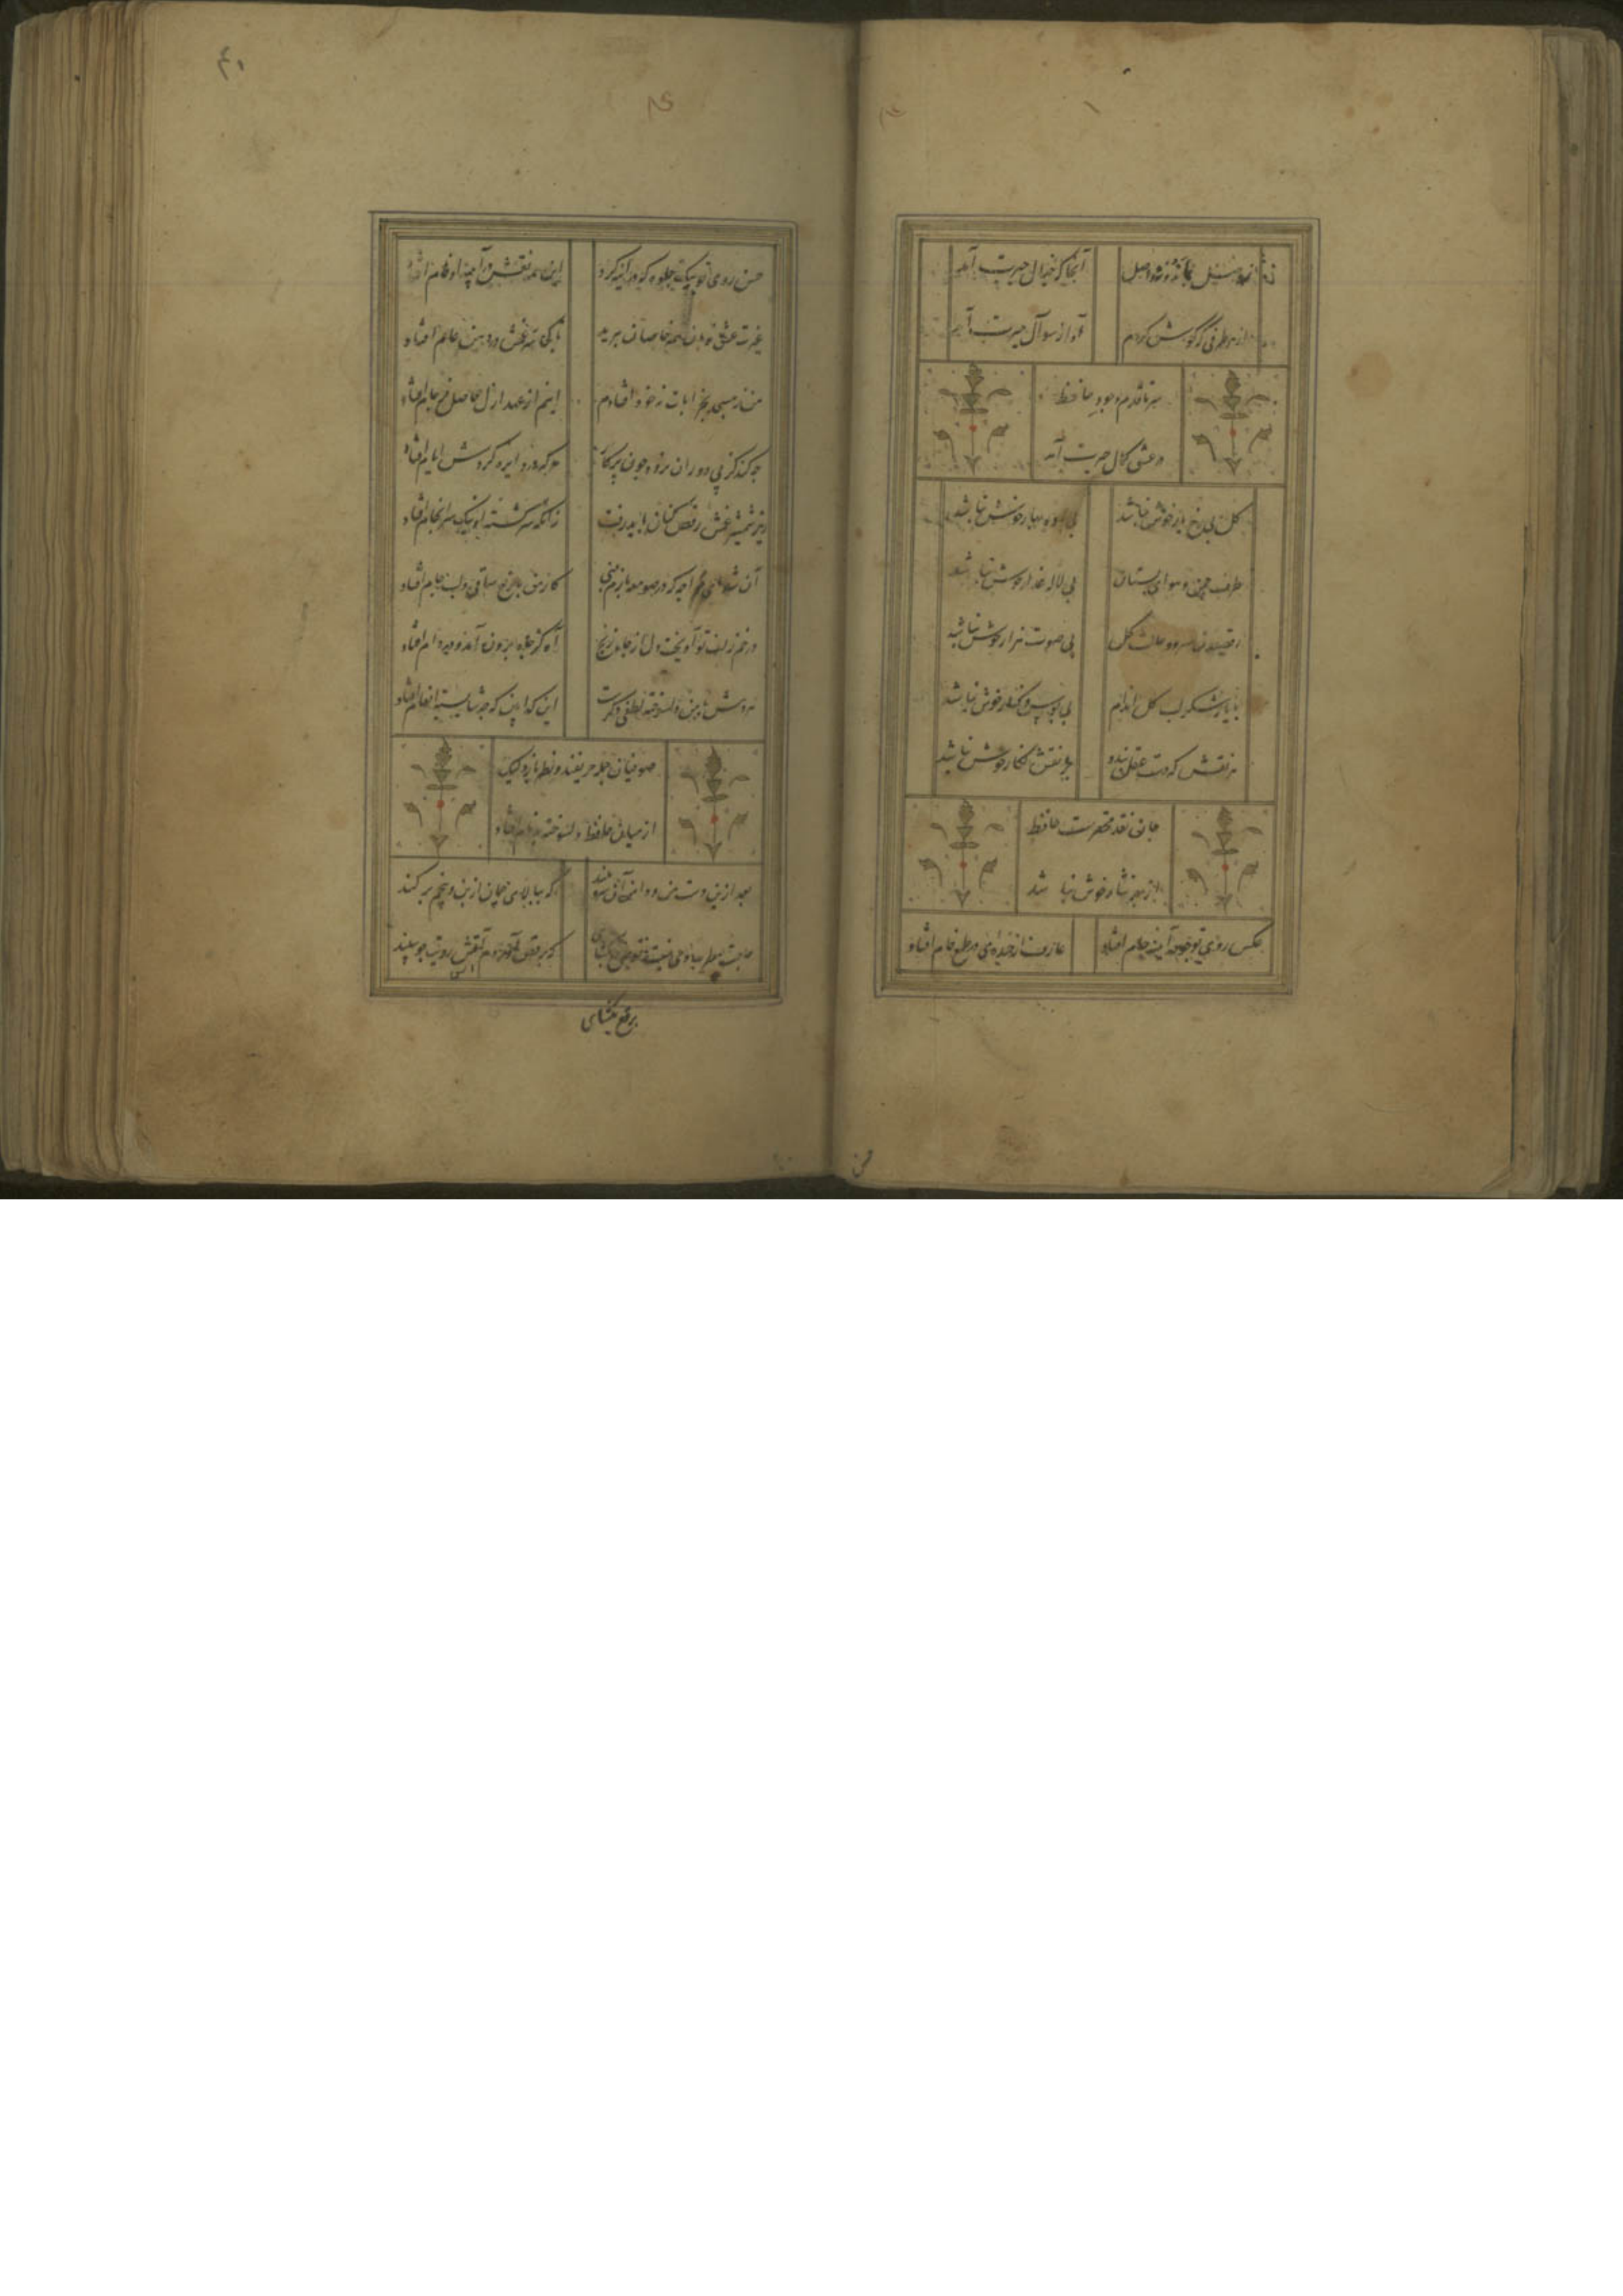 نه وصل بماند و نه واصل
آنجا که خیال حیرت آمد
از هر طرفی که گوش کردم
آواز سوآل حیرت آمد
سر تا قدم وجود حافظ
در عشق کمال حیرت آمد
گل بی رخ یار خوش نباشد
بی باده بهار خوش نباشد
طرف چمن و هوای بستان
بی لاله عذار خوش نباشد
رقصیدن سرو و حالت گل
بی صوت هزار خوش نباشد
با یار شکر لب گل اندام
بی بوس و کنار خوش نباشد
هر نقش که دست عقل بندد
جز نقش نگار خوش نباشد
جان نقد محقرست حافظ
از بهر نثار خوش نباشد
عکس روی تو چو در آینه جام افتاد
عارف از خنده می در طمع خام افتاد
۴۰
حسن روی تو بیک جلوه که در آینه کرد
این همه نقش در آیینه اوهام افتاد
غیرت عشق زبان همه خاصان ببرید
کز کجا سر غمش در دهن عام افتاد
من ز مسجد بخرابات نه خود افتادم
اینم از عهد ازل حاصل فرجام افتاد
چه کند کز پی دوران نرود چون پرگار
هر که در دایره گردش ایام افتاد
زیر شمشیر غمش رقص کنان باید رفت
زانکه سر گشته او نیک سرانجام افتاد
آن شد ای خواجه که در صومعه بازم بینی
کار من با رخ ساقی و لب جام افتاد
در خم زلف تو آویخت دل از چاه زنخ
آه کز چاه برون آمد و در دام افتاد
هر دمش با من دلسوخته لطفی دگرست
این گدا بین که چه شایسته انعام افتاد
صوفیان جمله حریفند و نظرباز ولیک
از میان حافظ دلسوخته بدنام افتاد
بعد ازین دست من و دامن آن سرو بلند
که ببالای چمان از بن و بیخم بر کند
حاجت مطرب و می نیست تو برقع بگشای
که برقص آوردم آتش رویت چو سپند
برقع بگشای